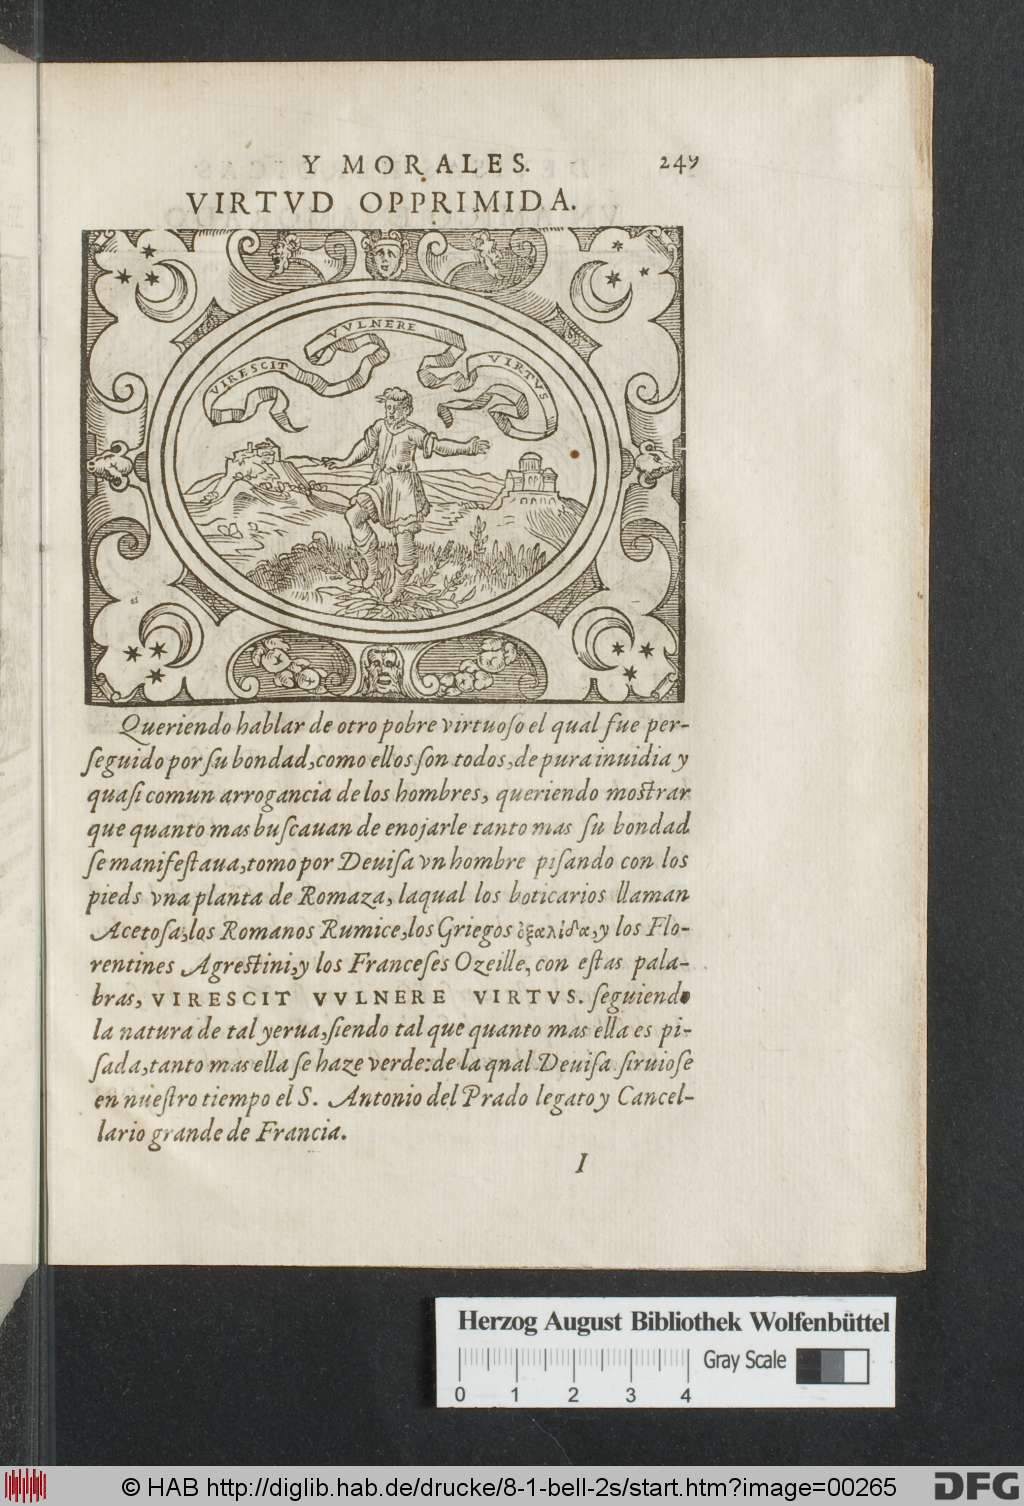 Y MORALES. 249
VIRTVD OPPRIMIDA.
VIRESCIT VVLNERE VIRTVS
Queriendo hablar de otro pobre virtuoſo el qual fue per-
ſeguido por ſu bondad, como ellos ſon todos, de pura inuidia y
quaſi comun arrogancia de los hombres, queriendo moſtrar
que quanto mas buſcauan de enojarle tanto mas ſu bondad
ſe manifeſtaua, tomo por Deuiſa vn hombre piſando con los
pieds vna planta de Romaza, laqual los boticarios llaman
Acetoſa, los Romanos Rumice, los Griegos ὀξαλίδα, y los Flo-
rentines Agreſtini, y los Franceſes Ozeille, con eſtas pala-
bras, VIRESCIT VVLNERE VIRTVS. ſeguiendo
la natura de tal yerua, ſiendo tal que quanto mas ella es pi-
ſada, tanto mas ella ſe haze verde: de la qnal Deuiſa ſiruioſe
en nueſtro tiempo el S. Antonio del Prado legato y Cancel-
lario grande de Francia.
I
Herzog August Bibliothek Wolfenbüttel
Gray Scale
0 1 2 3 4
© HAB http://diglib.hab.de/drucke/8-1-bell-2s/start.htm?image=00265
DFG